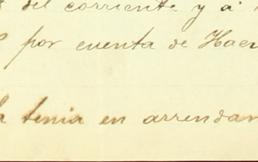 del corriente y á
por cuenta de Hac
la tenia en arrendam